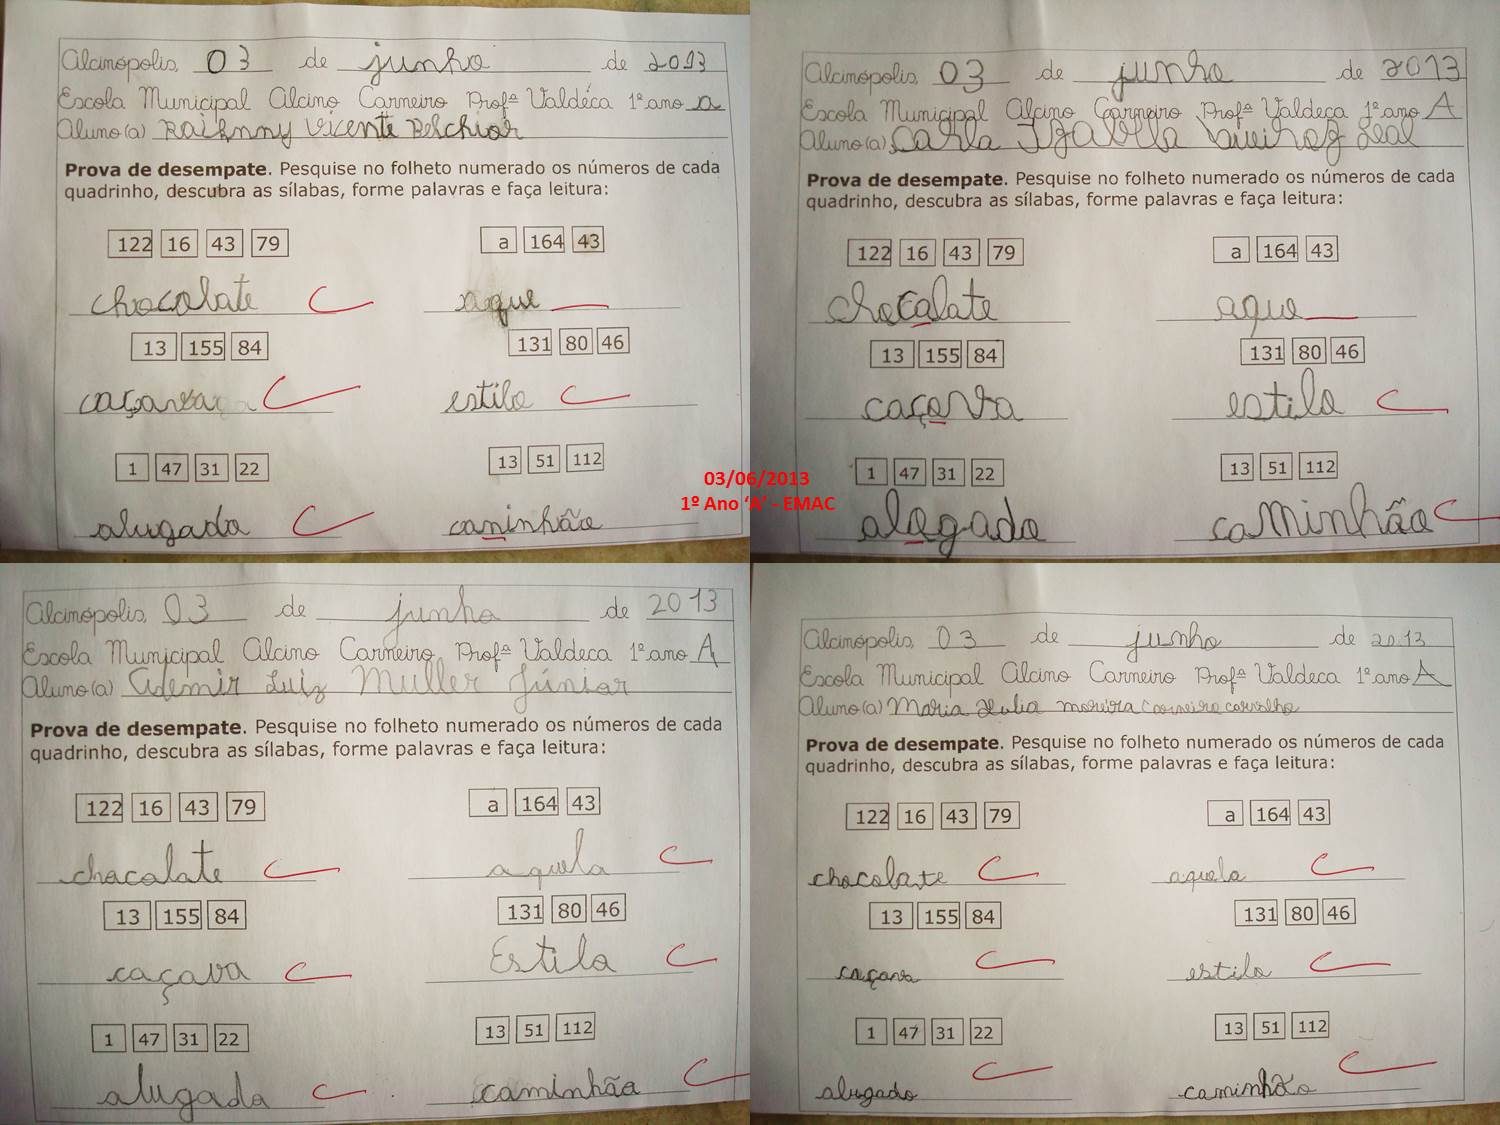 Alcinópolis, 03 de junho de 2013
Escola Municipal Alcino Carneiro Profª Valdéca 1º ano a
Aluno(a) Raihnny Vicente Belchior
Prova de desempate. Pesquise no folheto numerado os números de cada
quadrinho, descubra as sílabas, forme palavras e faça leitura:
122 16 43 79 a 164 43
chocolate C aque
13 155 84 131 80 46
caçava C estilo C
1 47 31 22 13 51 112
alugado C caninhão
Alcinópolis, 03 de junho de 2013
Escola Municipal Alcino Carneiro Profª Valdeca 1º ano A
Aluno(a) Carla Izabilla Queiroz Leal
Prova de desempate. Pesquise no folheto numerado os números de cada
quadrinho, descubra as sílabas, forme palavras e faça leitura:
122 16 43 79 a 164 43
chocalate aque
13 155 84 131 80 46
caçova estilo C
1 47 31 22 13 51 112
alogado caminhão C
03/06/2013
1º Ano ‘A’ - EMAC
Alcinópolis, 03 de junho de 2013
Escola Municipal Alcino Carneiro Profª Valdeca 1º ano A
Aluno(a) Ademir Luiz Muller Júnior
Prova de desempate. Pesquise no folheto numerado os números de cada
quadrinho, descubra as sílabas, forme palavras e faça leitura:
122 16 43 79 a 164 43
chocolate C aquela C
13 155 84 131 80 46
caçava C Estilo C
1 47 31 22 13 51 112
alugado C caminhão C
Alcinópolis, 03 de junho de 2013
Escola Municipal Alcino Carneiro Profª Valdeca 1º ano A
Aluno(a) Maria Julia moreira Carneiro carvalho
Prova de desempate. Pesquise no folheto numerado os números de cada
quadrinho, descubra as sílabas, forme palavras e faça leitura:
122 16 43 79 a 164 43
chocolate C aquela C
13 155 84 131 80 46
caçava C estilo C
1 47 31 22 13 51 112
alugado C caminhão C